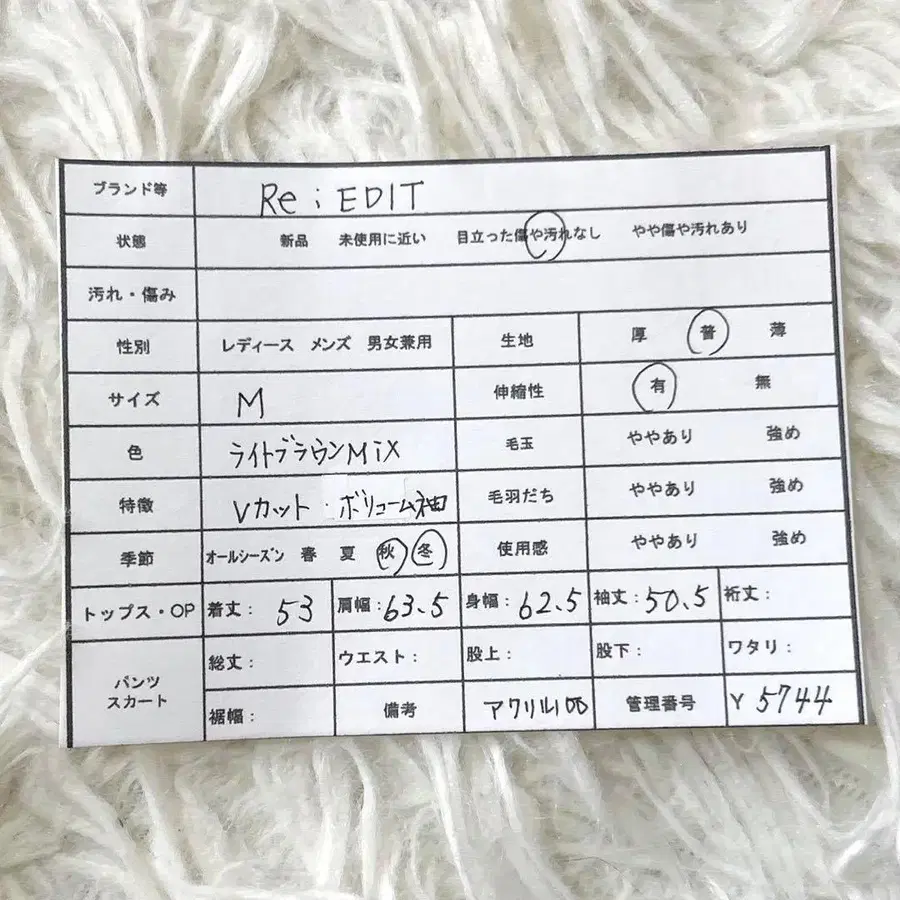 ブランド等 Re:EDIT
状態 新品 未使用に近い 目立った傷や汚れなし やや傷や汚れあり
汚れ・傷み
性別 レディース メンズ 男女兼用 生地 厚 普 薄
サイズ M 伸縮性 有 無
色 ライトブラウンMiX 毛玉 ややあり 強め
特徴 Vカット・ボリューム袖 毛羽だち ややあり 強め
季節 オールシーズン 春 夏 秋 冬 使用感 ややあり 強め
トップス・OP 着丈: 53 肩幅: 63.5 身幅: 62.5 袖丈: 50.5 裄丈:
パンツ スカート 総丈: ウエスト: 股上: 股下: ワタリ:
裾幅: 備考 アクリル100 管理番号 Y 5744